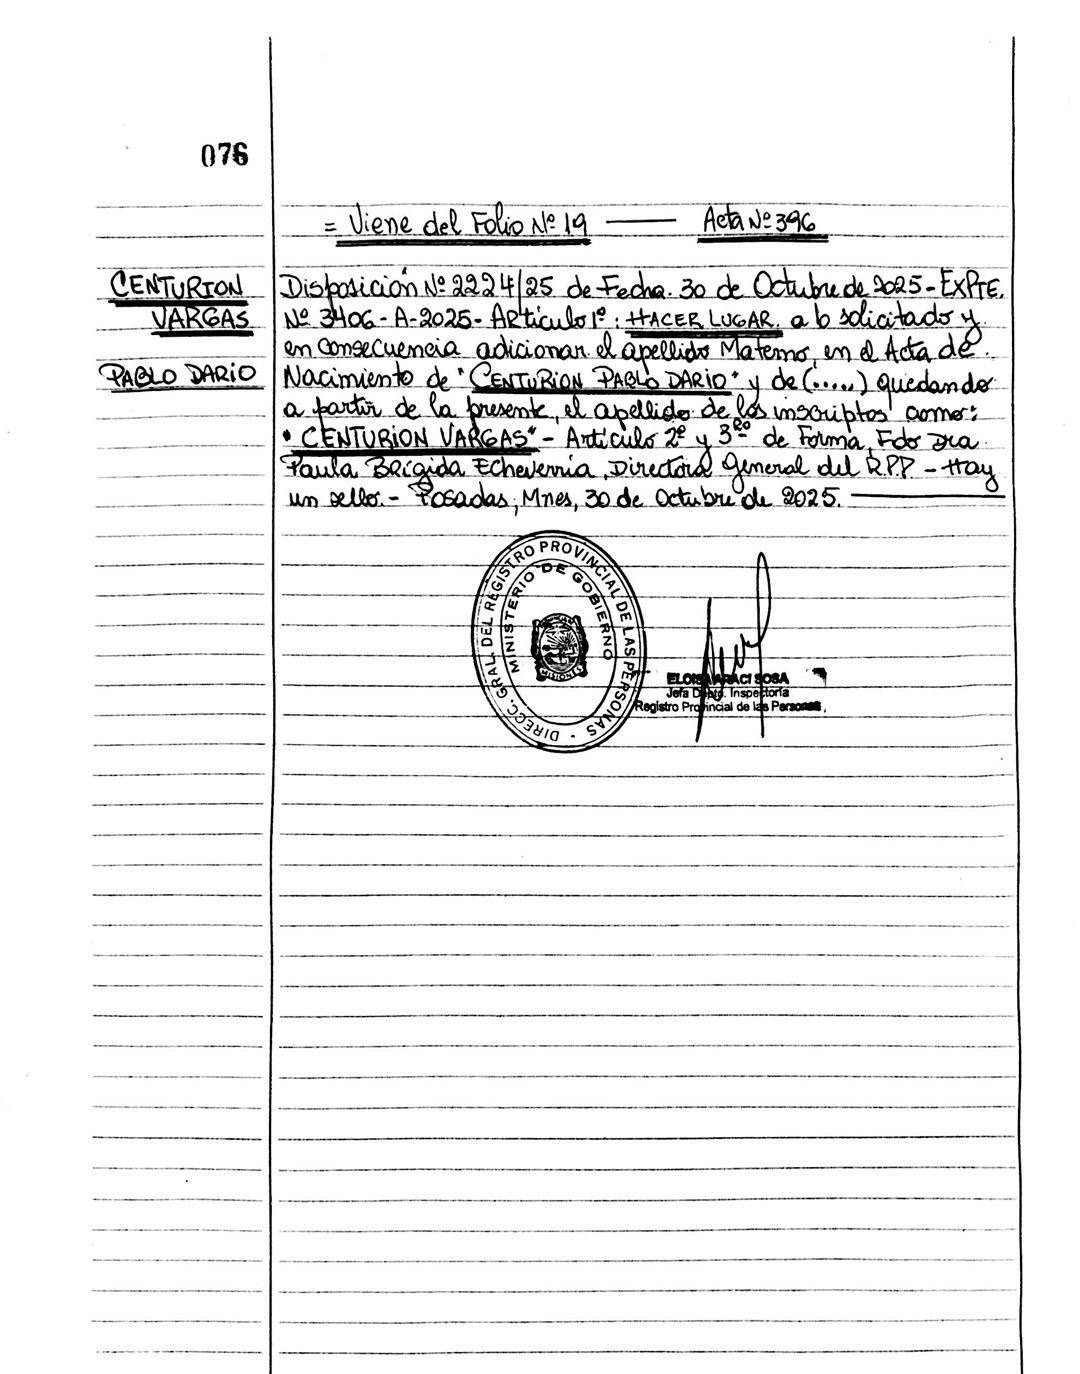 076
= Viene del Folio Nº 19 —— Acta Nº 396
CENTURION
VARGAS
PABLO DARIO
Disposición Nº 2224/25 de Fecha. 30 de Octubre de 2025 - EXPTE.
Nº 3406 - A - 2025 - ARticulo 1º : HACER LUGAR, a lo solicitado y
en consecuencia adicionar el apellido Materno, en el Acta de
Nacimiento de "CENTURION PABLO DARIO" y de (.....) quedando
a partir de la presente, el apellido de los inscriptos como:
"CENTURION VARGAS" - Artículo 2º y 3ro de Forma, Fdo Dra
Paula Brigida Echeverria, Directora General del R.P.P. - Hay
un sello. - Posadas, Mnes, 30 de Octubre de 2025.
DIRECC. GRAL. DEL REGISTRO PROVINCIAL DE LAS PERSONAS -
MINISTERIO DE GOBIERNO
MISIONES
ELOISA ARACI SOSA
Jefa Dpto. Inspectoría
Registro Provincial de las Personas